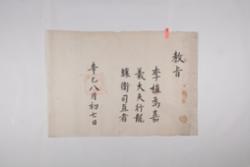 教旨
李植爲嘉
義大夫行龍
驤衛司直者
辛巳八月初七日